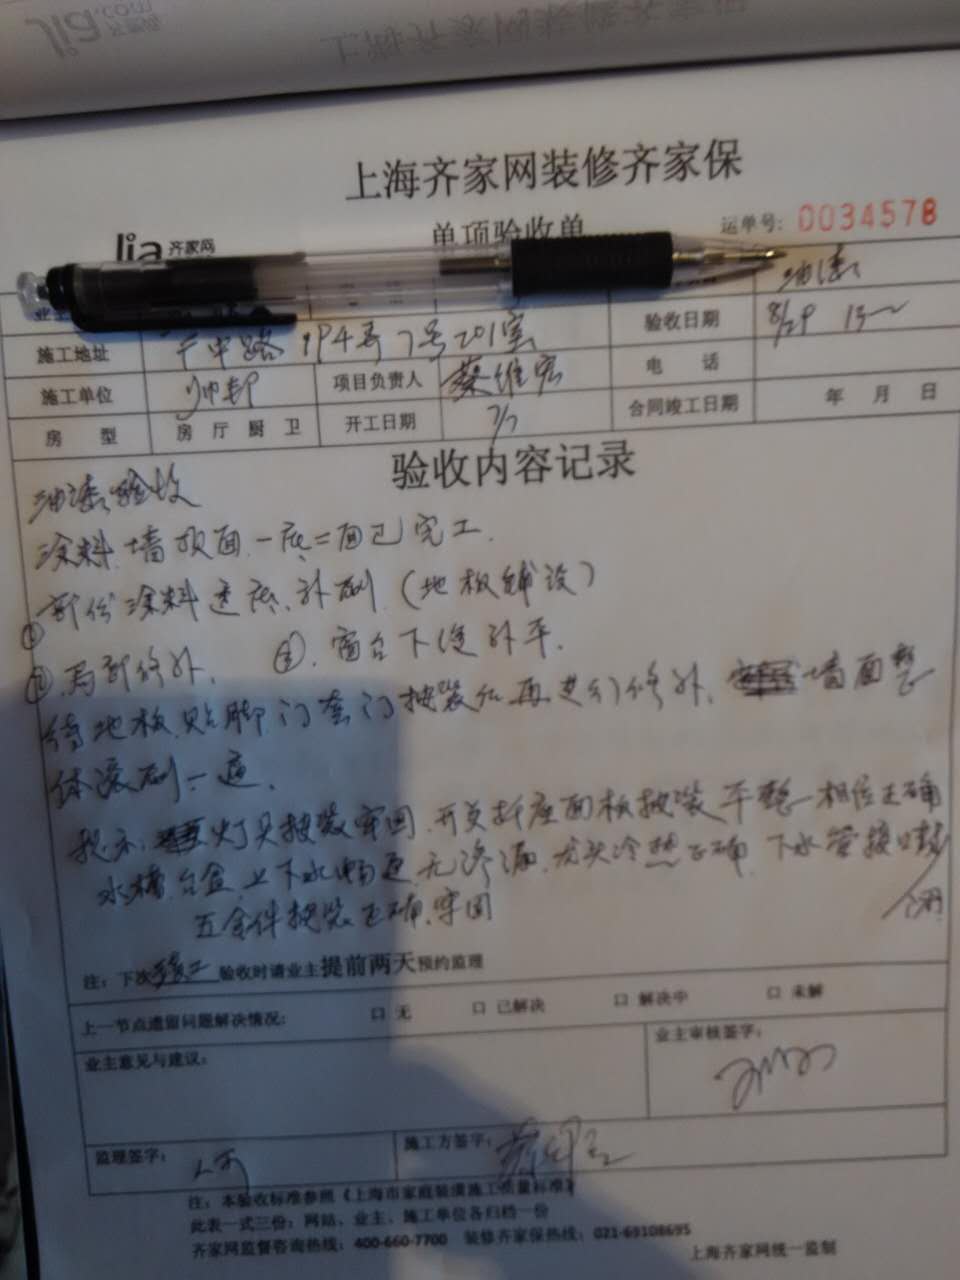 上海齐家网装修齐家保
单项验收单
运单号: 0034578
Jia 齐家网
油漆
施工地址 194弄7号201室 验收日期 8/29
施工单位 帅邦 项目负责人 蔡维宏 电 话
房 型 房 厅 厨 卫 开工日期 7/7 合同竣工日期 年 月 日
验收内容记录
油漆验收
涂料.墙顶面.一底=面已完工.
① 部份涂料透底.补刷.(地板铺设)
② 局部修补. ③.窗台下侧补平.
待地板.贴脚.门套门按装后再进行修补. 墙面整
体滚刷一遍.
提示. 灯具按装牢固.开关插座面板按装平整 相位正确
水槽.台盆.上下水畅通.无渗漏.龙头冷热正确.下水管接口
五金件按装正确.牢固
注: 下次竣工验收时请业主提前两天预约监理
上一节点遗留问题解决情况: 口 无 口 已解决 口 解决中 口 未解
业主意见与建议: 业主审核签字:
监理签字: 施工方签字:
注: 本验收标准参照《上海市家庭装潢施工质量标准》
此表一式三份: 网站、业主、施工单位各归档一份
齐家网监督咨询热线: 400-660-7700 装修齐家保热线: 021-69108695
上海齐家网统一监制